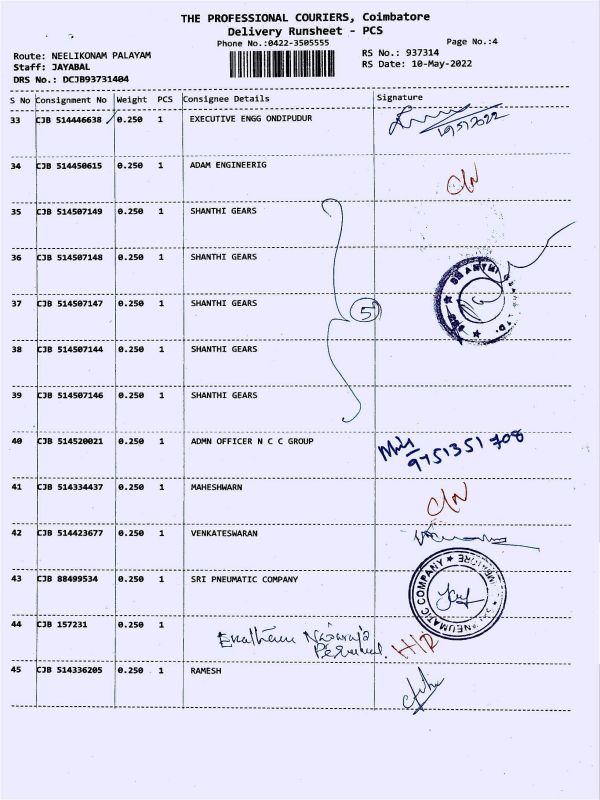 THE PROFESSIONAL COURIERS, Coimbatore
Delivery Runsheet - PCS
Phone No.:0422-3505555
Page No.:4
Route: NEELIKONAM PALAYAM
RS No.: 937314
Staff: JAYABAL
RS Date: 10-May-2022
DRS No.: DCJB93731404
S No Consignment No Weight PCS Consignee Details Signature
33 CJB 514446638 0.250 1 EXECUTIVE ENGG ONDIPUDUR
34 CJB 514450615 0.250 1 ADAM ENGINEERIG
C/N
35 CJB 514507149 0.250 1 SHANTHI GEARS
36 CJB 514507148 0.250 1 SHANTHI GEARS
37 CJB 514507147 0.250 1 SHANTHI GEARS
5
38 CJB 514507144 0.250 1 SHANTHI GEARS
39 CJB 514507146 0.250 1 SHANTHI GEARS
40 CJB 514520021 0.250 1 ADMN OFFICER N C C GROUP
9751351708
41 CJB 514334437 0.250 1 MAHESHWARN
C/N
42 CJB 514423677 0.250 1 VENKATESWARAN
43 CJB 88499534 0.250 1 SRI PNEUMATIC COMPANY
PNEUMATIC COMPANY
44 CJB 157231 0.250 1
45 CJB 514336205 0.250 1 RAMESH